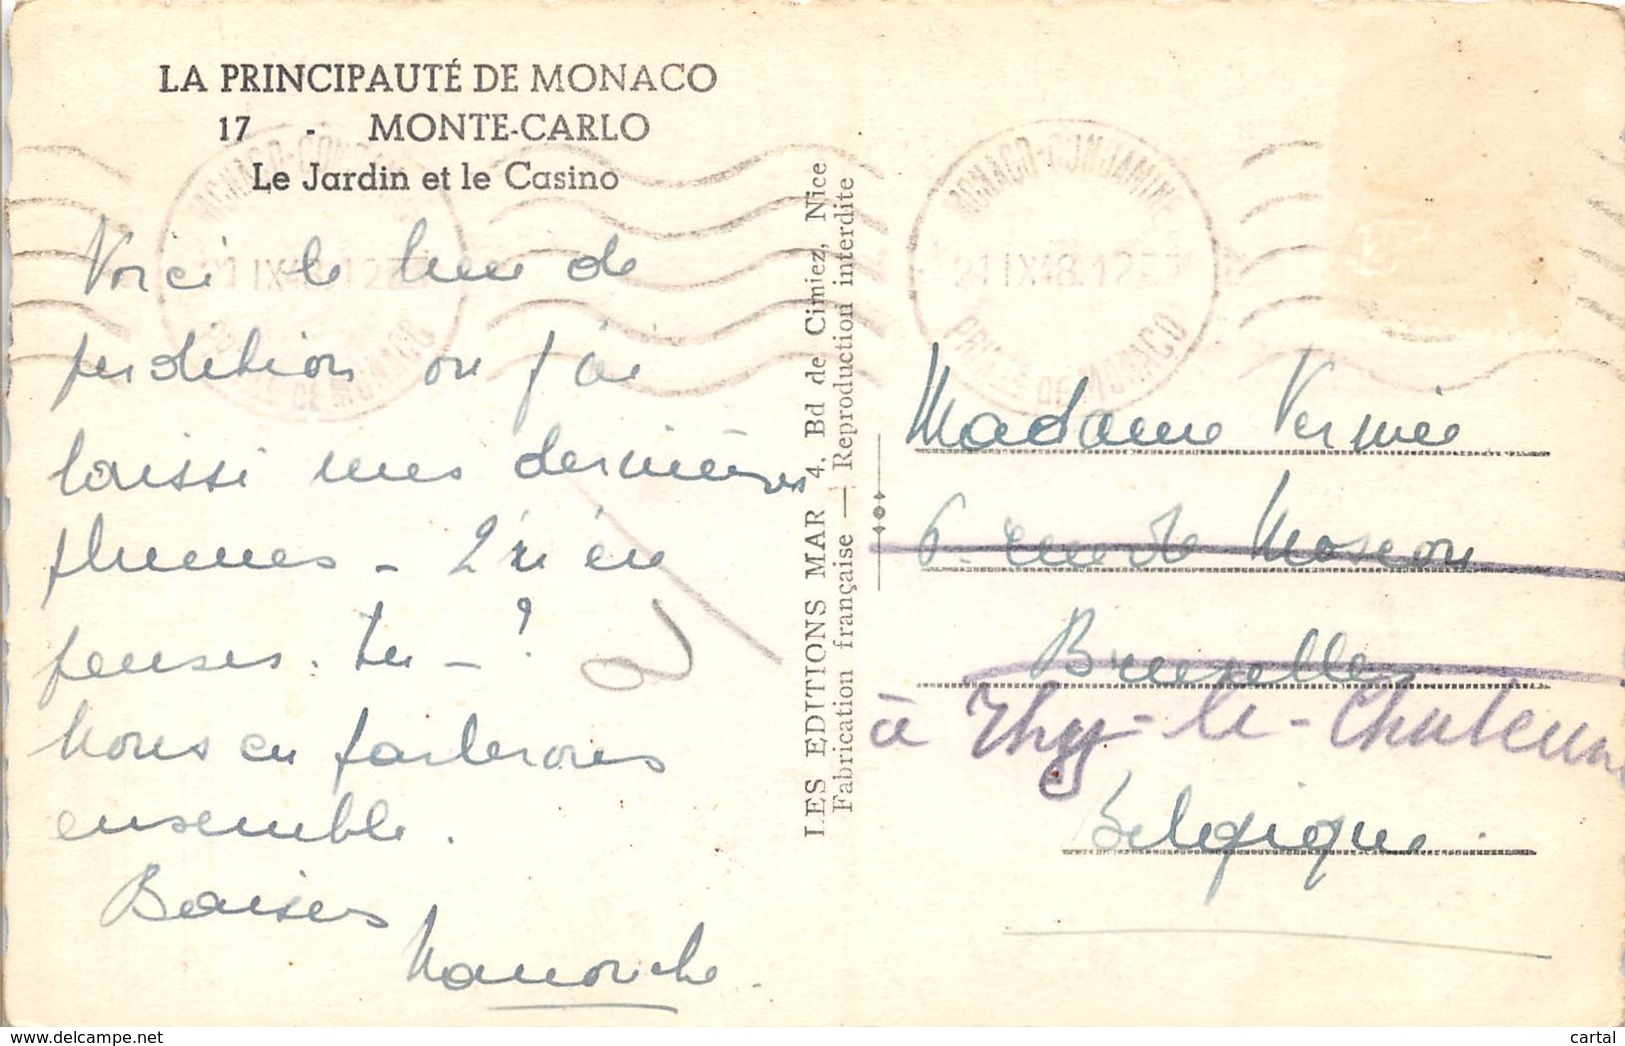 LA PRINCIPAUTÉ DE MONACO
17 - MONTE-CARLO
Le Jardin et le Casino
Voici le lieu de
perdition ou j'ai
laissé mes dernières
plumes - Qu'en
penses-tu - ?
Nous en parlerons
ensemble.
Baisers
Manouche
LES EDITIONS MAR 4, Bd de Cimiez, Nice
Fabrication française — Reproduction interdite
MONACO-CONDAMINE
21 IX 48. 12
PRINCTE DE MONACO
Madame
6. rue de Moscou
Bruxelles
à Thy-le-Chateau
Belgique.
www.delcampe.net
cartal